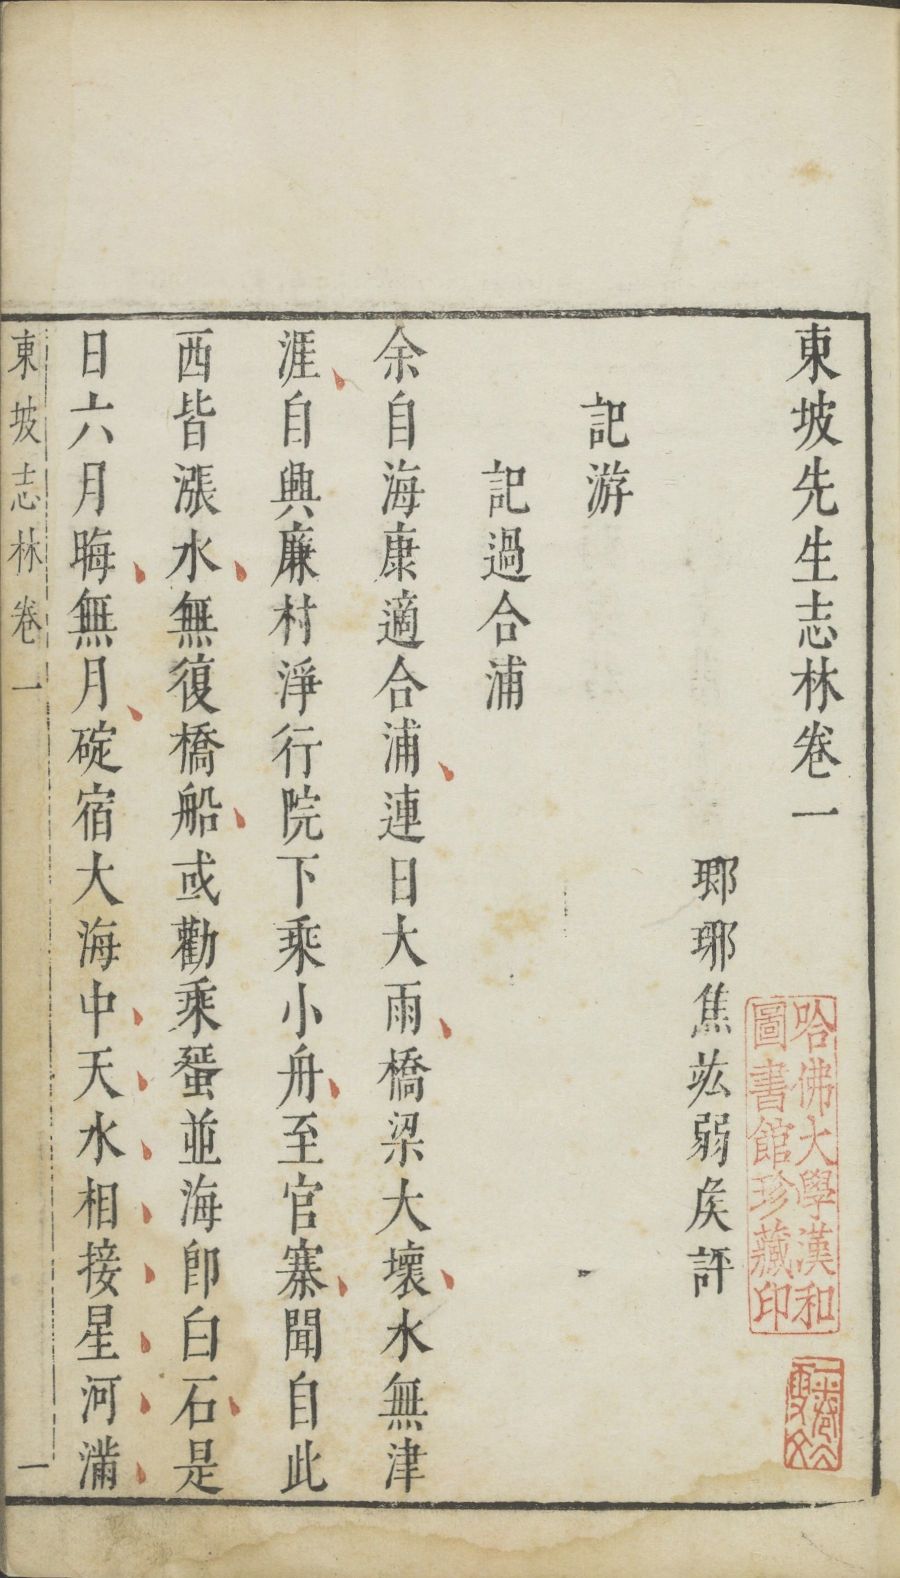 東坡先生志林卷一
瑯琊焦竑弱矦評
記游
記過合浦
余自海康適合浦連日大雨橋梁大壞水無津
涯自興廉村淨行院下乘小舟至官寨聞自此
西皆漲水無復橋船或勸乘蜑並海卽白石是
日六月晦無月碇宿大海中天水相接星河滿
東坡志林卷一
一
哈佛大學漢和
圖書館珍藏印